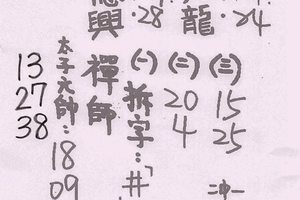 13
27
38
太子元帥：18
09
禪師
興·28
龍·24
(一)拆字：「井
(二)20
4
(三)15
25
二沖一